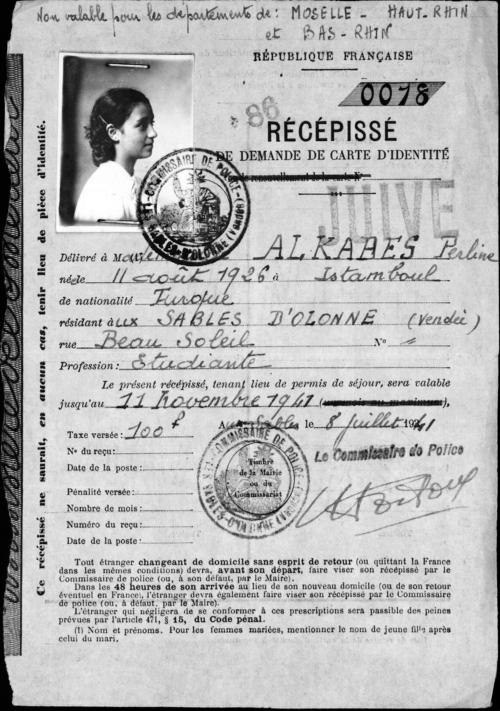 Non valable pour les départements de : MOSELLE - HAUT-RHIN
et BAS-RHIN
RÉPUBLIQUE FRANÇAISE
0078
86
RÉCÉPISSÉ
DE DEMANDE DE CARTE D'IDENTITÉ
de renouvellement de la carte N°
JUIVE
Délivré à ALKABES Perline
née le 11 août 1926 à Istamboul
de nationalité Turque
résidant aux SABLES D'OLONNE (Vendée)
rue Beau Soleil N° "
Profession : Etudiante
Le présent récépissé, tenant lieu de permis de séjour, sera valable
jusqu'au 11 Novembre 1941 (trois mois au maximum),
Aux Sables le 8 Juillet 1941
Taxe versée : 100 f
N° du reçu :
Date de la poste :
Pénalité versée :
Nombre de mois :
Numéro du reçu :
Date de la poste :
Timbre
de la Mairie
ou du
Commissariat
Le Commissaire de Police
COMMISSAIRE DE POLICE
SABLES-D'OLONNE (Vendée)
COMMISSAIRE DE POLICE
SABLES-D'OLONNE (Vendée)
Tout étranger changeant de domicile sans esprit de retour (ou quittant la France
dans les mêmes conditions) devra, avant son départ, faire viser son récépissé par le
Commissaire de police (ou, à son défaut, par le Maire).
Dans les 48 heures de son arrivée au lieu de son nouveau domicile (ou de son retour
éventuel en France), l'étranger devra également faire viser son récépissé par le Commissaire
de police (ou, à défaut, par le Maire).
L'étranger qui négligera de se conformer à ces prescriptions sera passible des peines
prévues par l'article 471, § 15, du Code pénal.
(1) Nom et prénoms. Pour les femmes mariées, mentionner le nom de jeune fille après
celui du mari.
Ce récépissé ne saurait, en aucun cas, tenir lieu de pièce d'identité.